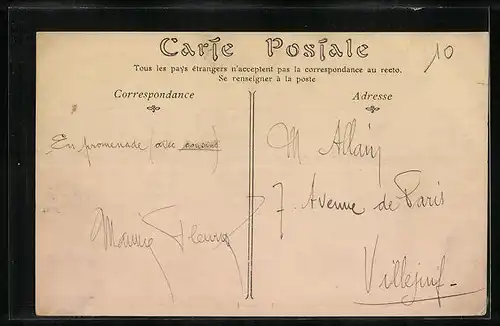 Carte Postale
10
Tous les pays étrangers n'acceptent pas la correspondance au recto.
Se renseigner à la poste
Correspondance
Adresse
En promenade (avec
Maurice Fleury
M. Allain
7. Avenue de Paris
Villejuif